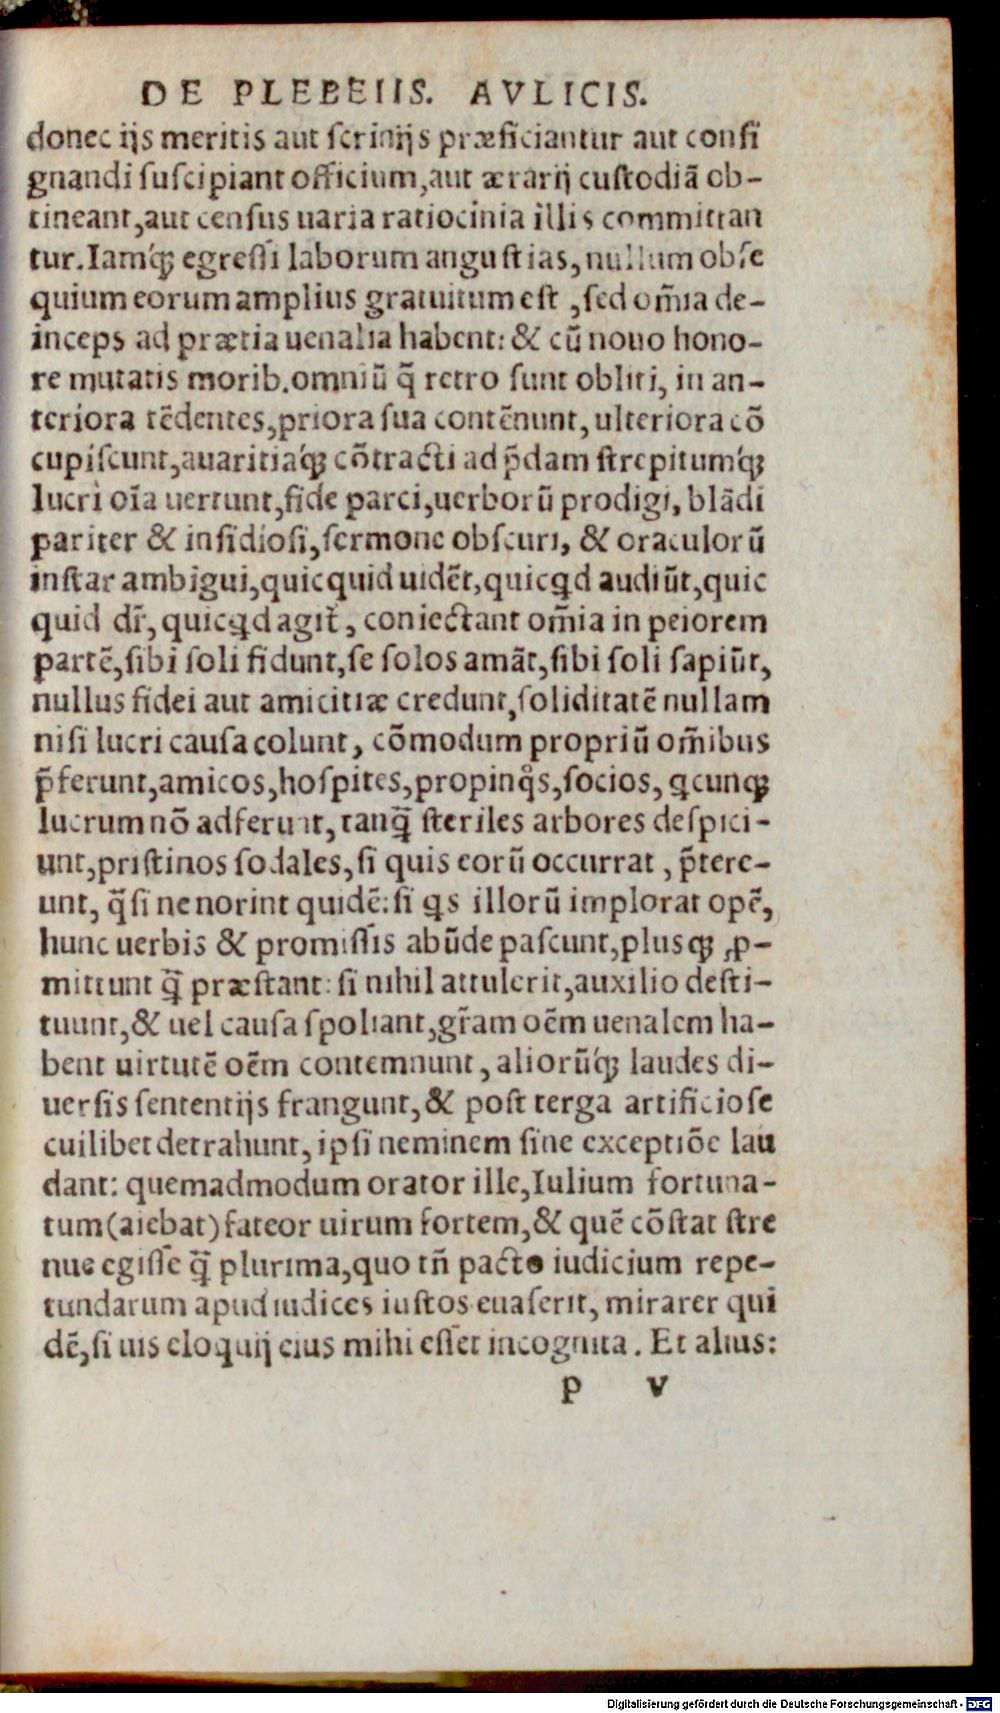 DE PLEBEIIS. AVLICIS.
donec ijs meritis aut scrinijs præficiantur aut consi
gnandi suscipiant officium, aut ærarij custodiā ob-
tineant, aut census uaria ratiocinia illis committan
tur. Iamq́ꝫ egressi laborum angustias, nullum obse
quium eorum amplius gratuitum est, sed om̄ia de-
inceps ad prætia uenalia habent: & cū nouo hono-
re mutatis morib. omniū q̄ retro sunt obliti, in an-
teriora tēdentes, priora sua contēnunt, ulteriora cō
cupiscunt, auaritiaq́ꝫ cōtracti ad p̄dam strepitumq́ꝫ
lucri oīa uertunt, fide parci, uerborū prodigi, blādi
pariter & insidiosi, sermone obscuri, & oraculorū
instar ambigui, quicquid uidēt, quicꝗd audiūt, quic
quid dr̄, quicꝗd agit̄, coniectant om̄ia in peiorem
partē, sibi soli fidunt, se solos amāt, sibi soli sapiūt,
nullus fidei aut amicitiæ credunt, soliditatē nullam
nisi lucri causa colunt, cōmodum propriū om̄ibus
p̄ferunt, amicos, hospites, propinq̊s, socios, ꝗcunqꝫ
lucrum nō adferunt, tanq̄ꝫ steriles arbores despici-
unt, pristinos sodales, si quis eorū occurrat, p̄tere-
unt, q̄si ne norint quidē: si ꝗs illorū implorat opē,
hunc uerbis & promissis abūde pascunt, plusqꝫ ꝓ-
mittunt q̄ꝫ præstant: si nihil attulerit, auxilio desti-
tuunt, & uel causa spoliant, gr̄am oēm uenalem ha-
bent uirtutē oēm contemnunt, aliorūq́ꝫ laudes di-
uersis sententijs frangunt, & post terga artificiose
cuilibet detrahunt, ipsi neminem sine exceptiōe lau
dant: quemadmodum orator ille, Iulium fortuna-
tum (aiebat) fateor uirum fortem, & quē cōstat stre
nue egisse q̄ꝫ plurima, quo tn̄ pacto iudicium repe-
tundarum apud iudices iustos euaserit, mirarer qui
dē, si uis eloquij eius mihi esset incognita. Et alius:
p v
Digitalisierung gefördert durch die Deutsche Forschungsgemeinschaft - DFG